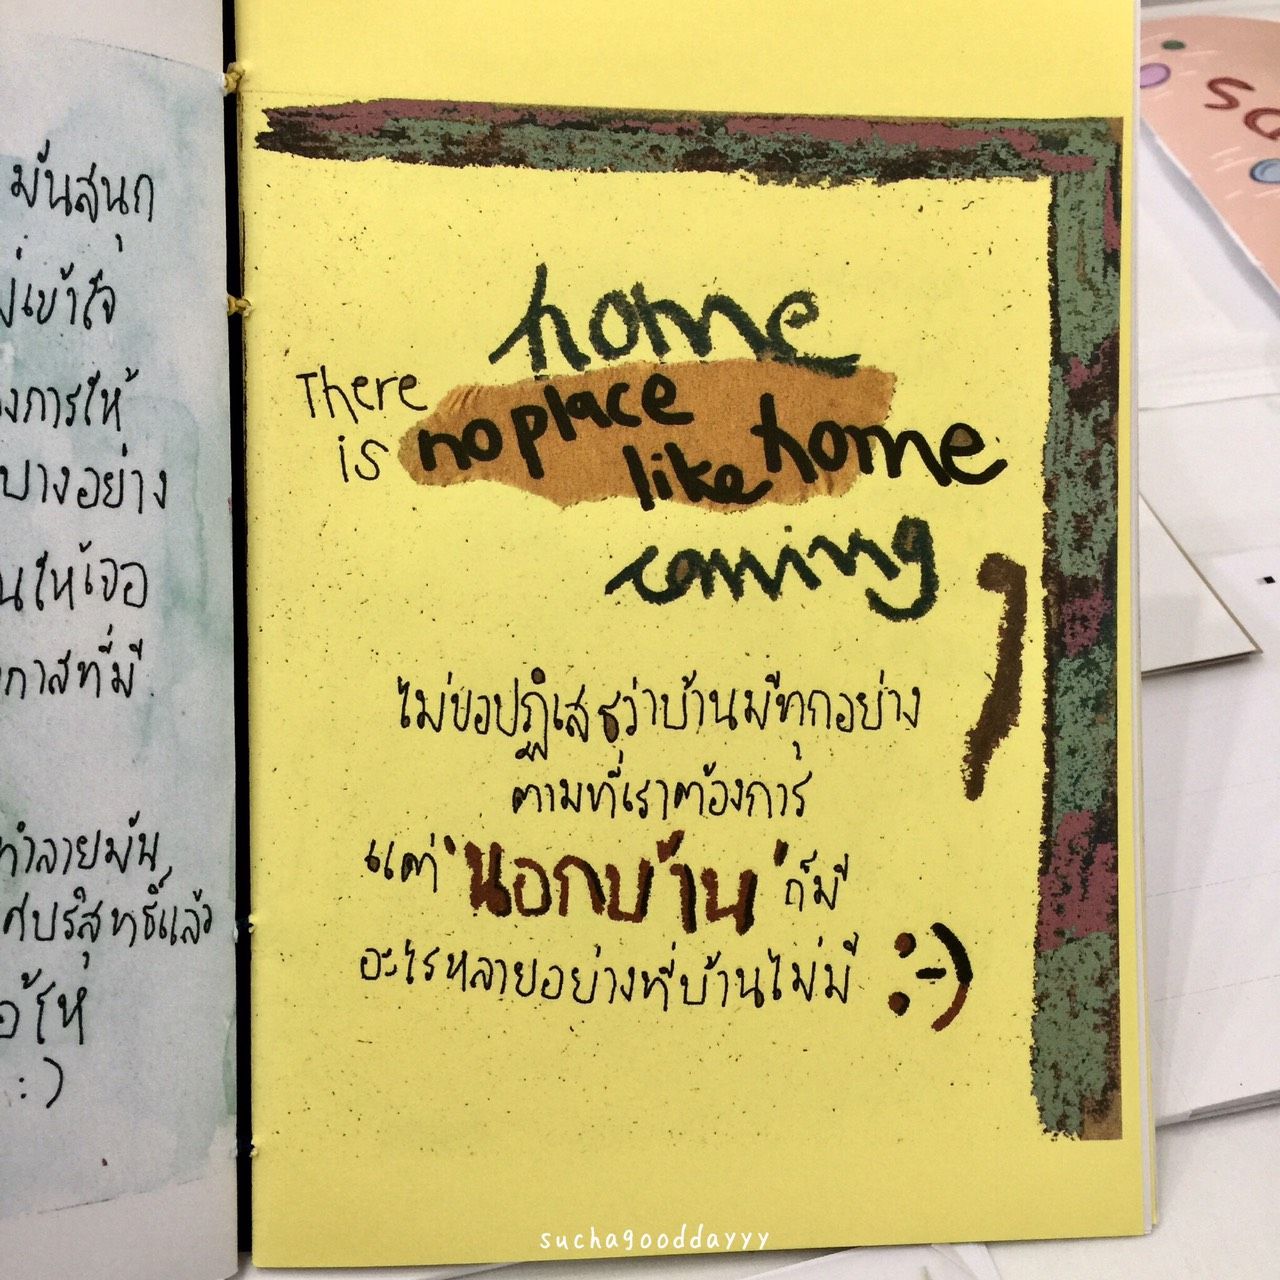 มันสนุก
เข้าใจ
งการให้
บางอย่าง
นให้เจอ
กาสที่มี
ทำลายมัน
ศบริสุทธิ์แล้ว
:)
home
There
is no place
like home
coming
ไม่ขอปฏิเสธว่าบ้านมีทุกอย่าง
ตามที่เราต้องการ
แต่ 'นอกบ้าน' ก็มี
อะไรหลายอย่างที่บ้านไม่มี :-)
suchagooddayyy